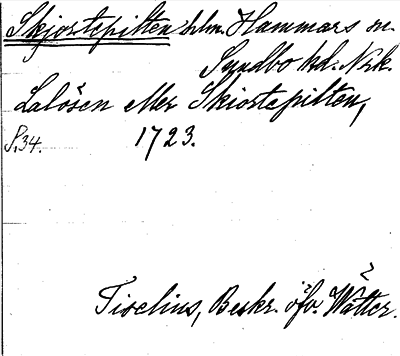 Skjortepilten holm Hammars sn.
Sundbo hd. Nrk.
Lalösen eller Skiortepilten,
S.34. 1723.
Tiselius, Beskr. öfv. Wätter.